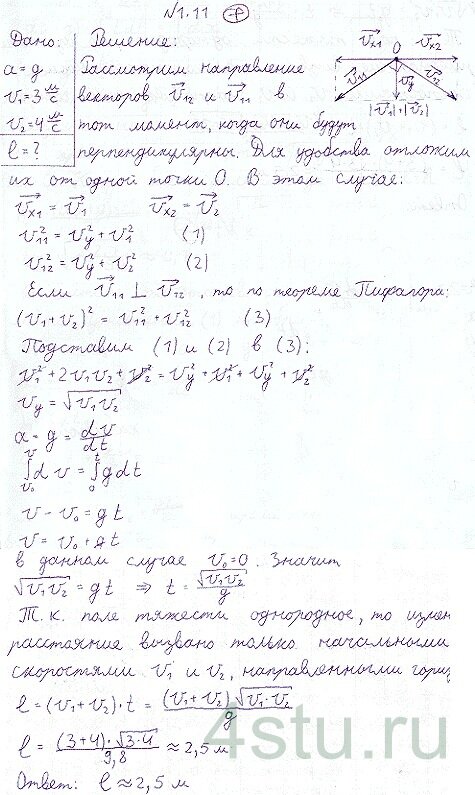 №1.11 +
Дано: Решение:
a = g Рассмотрим направление
v₁ = 3 м/с векторов v⃗₁₂ и v⃗₁₁ в
v₂ = 4 м/с тот момент, когда они будут
l = ? перпендикулярны. Для удобства отложим
их от одной точки О. В этом случае:
v⃗ₓ₁ O v⃗ₓ₂
v⃗₁₁ v⃗y v⃗₁₂
|v⃗₁|+|v⃗₂|
v⃗ₓ₁ = v⃗₁ v⃗ₓ₂ = v⃗₂
v₁₁² = vy² + v₁² (1)
v₁₂² = vy² + v₂² (2)
Если v⃗₁₁ ⊥ v⃗₁₂, то по теореме Пифагора:
(v₁ + v₂)² = v₁₁² + v₁₂² (3)
Подставим (1) и (2) в (3):
v₁² + 2v₁v₂ + v₂² = vy² + v₁² + vy² + v₂²
vy = √(v₁v₂)
a = g = dv/dt
∫ᵥ₀ᵛ dv = ∫₀ᵗ g dt
v - v₀ = gt
v = v₀ + gt
в данном случае v₀ = 0. Значит
√(v₁v₂) = gt ⇒ t = √(v₁v₂)/g
Т.к. поле тяжести однородное, то измен
расстояние вызвано только начальными
скоростями v₁ и v₂, направленными гориз
l = (v₁ + v₂)·t = (v₁ + v₂)√(v₁·v₂)/g
l = (3+4)·√(3·4)/9,8 ≈ 2,5 м
Ответ: l ≈ 2,5 м
4stu.ru